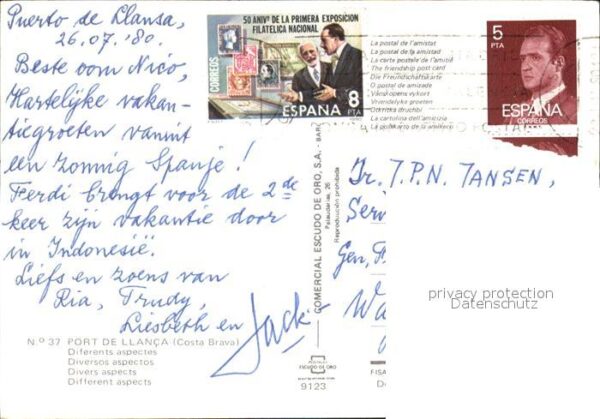 Puerto de Llansa,
26.07.'80.
Beste oom Nico,
Hartelijke vakan-
tiegroeten vanuit
een zonnig Spanje!
Ferdi brengt voor de 2de
keer zijn vakantie door
in Indonesië.
Liefs en zoens van
Ria, Trudy,
Liesbeth en Jack
Nº 37 PORT DE LLANÇA (Costa Brava)
Diferents aspectes
Diversos aspectos
Divers aspects
Different aspects
50 ANIVº DE LA PRIMERA EXPOSICION
FILATELICA NACIONAL
CORREOS
ESPAÑA 8
PTA
La postal de l'amistat
La postal de la amistad
La carte postale de l'amitié
The friendship post card
Die Freundschaftskarte
O postal de amizade
Vriendelyke groeten
La cartolina dell'amicizia
5
PTA
ESPAÑA
CORREOS
COMERCIAL ESCUDO DE ORO, S.A. - BARC
Palaudarias, 26
Reproducción prohibida
ESCUDO DE ORO
9123
FISA
Dr. J.P.N. JANSEN,
Gen.
Wa
privacy protection
Datenschutz